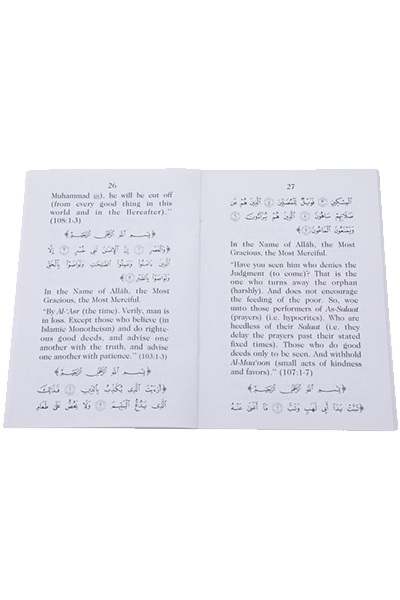 26
Muhammad ﷺ), he will be cut off
(from every good thing in this
world and in the Hereafter)."
(108:1-3)
﴿بِسْمِ اللَّهِ الرَّحْمَٰنِ الرَّحِيمِ﴾
﴿وَالْعَصْرِ ۝١ إِنَّ الْإِنسَانَ لَفِي خُسْرٍ ۝٢ إِلَّا
الَّذِينَ ءَامَنُوا وَعَمِلُوا الصَّالِحَاتِ وَتَوَاصَوْا بِالْحَقِّ
وَتَوَاصَوْا بِالصَّبْرِ ۝٣﴾
In the Name of Allâh, the Most
Gracious, the Most Merciful.
"By Al-'Asr (the time). Verily, man is
in loss. Except those who believe (in
Islamic Monotheism) and do righte-
ous good deeds, and advise one
another with the truth, and advise
one another with patience." (103:1-3)
﴿بِسْمِ اللَّهِ الرَّحْمَٰنِ الرَّحِيمِ﴾
﴿أَرَءَيْتَ الَّذِي يُكَذِّبُ بِالدِّينِ ۝١ فَذَٰلِكَ
الَّذِي يَدُعُّ الْيَتِيمَ ۝٢ وَلَا يَحُضُّ عَلَىٰ طَعَامِ
27
الْمِسْكِينِ ۝٣ فَوَيْلٌ لِّلْمُصَلِّينَ ۝٤ الَّذِينَ هُمْ عَن
صَلَاتِهِمْ سَاهُونَ ۝٥ الَّذِينَ هُمْ يُرَاءُونَ ۝٦
وَيَمْنَعُونَ الْمَاعُونَ ۝٧﴾
In the Name of Allâh, the Most
Gracious, the Most Merciful.
"Have you seen him who denies the
Judgment (to come)? That is the
one who turns away the orphan
(harshly). And does not encourage
the feeding of the poor. So, woe
unto those performers of As-Salaat
(prayers) (i.e. hypocrites). Who are
heedless of their Salaat (i.e. they
delay the prayers past their stated
fixed times). Those who do good
deeds only to be seen. And withhold
Al-Maa'oon (small acts of kindness
and favors)." (107:1-7)
﴿بِسْمِ اللَّهِ الرَّحْمَٰنِ الرَّحِيمِ﴾
﴿تَبَّتْ يَدَا أَبِي لَهَبٍ وَتَبَّ ۝١ مَا أَغْنَىٰ عَنْهُ